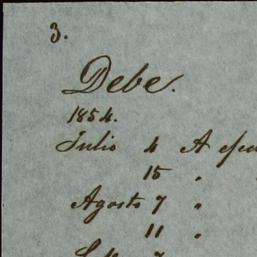 3.
Debe.
1854.
Julio 4 A
15 "
Agosto 7 "
11 "
7